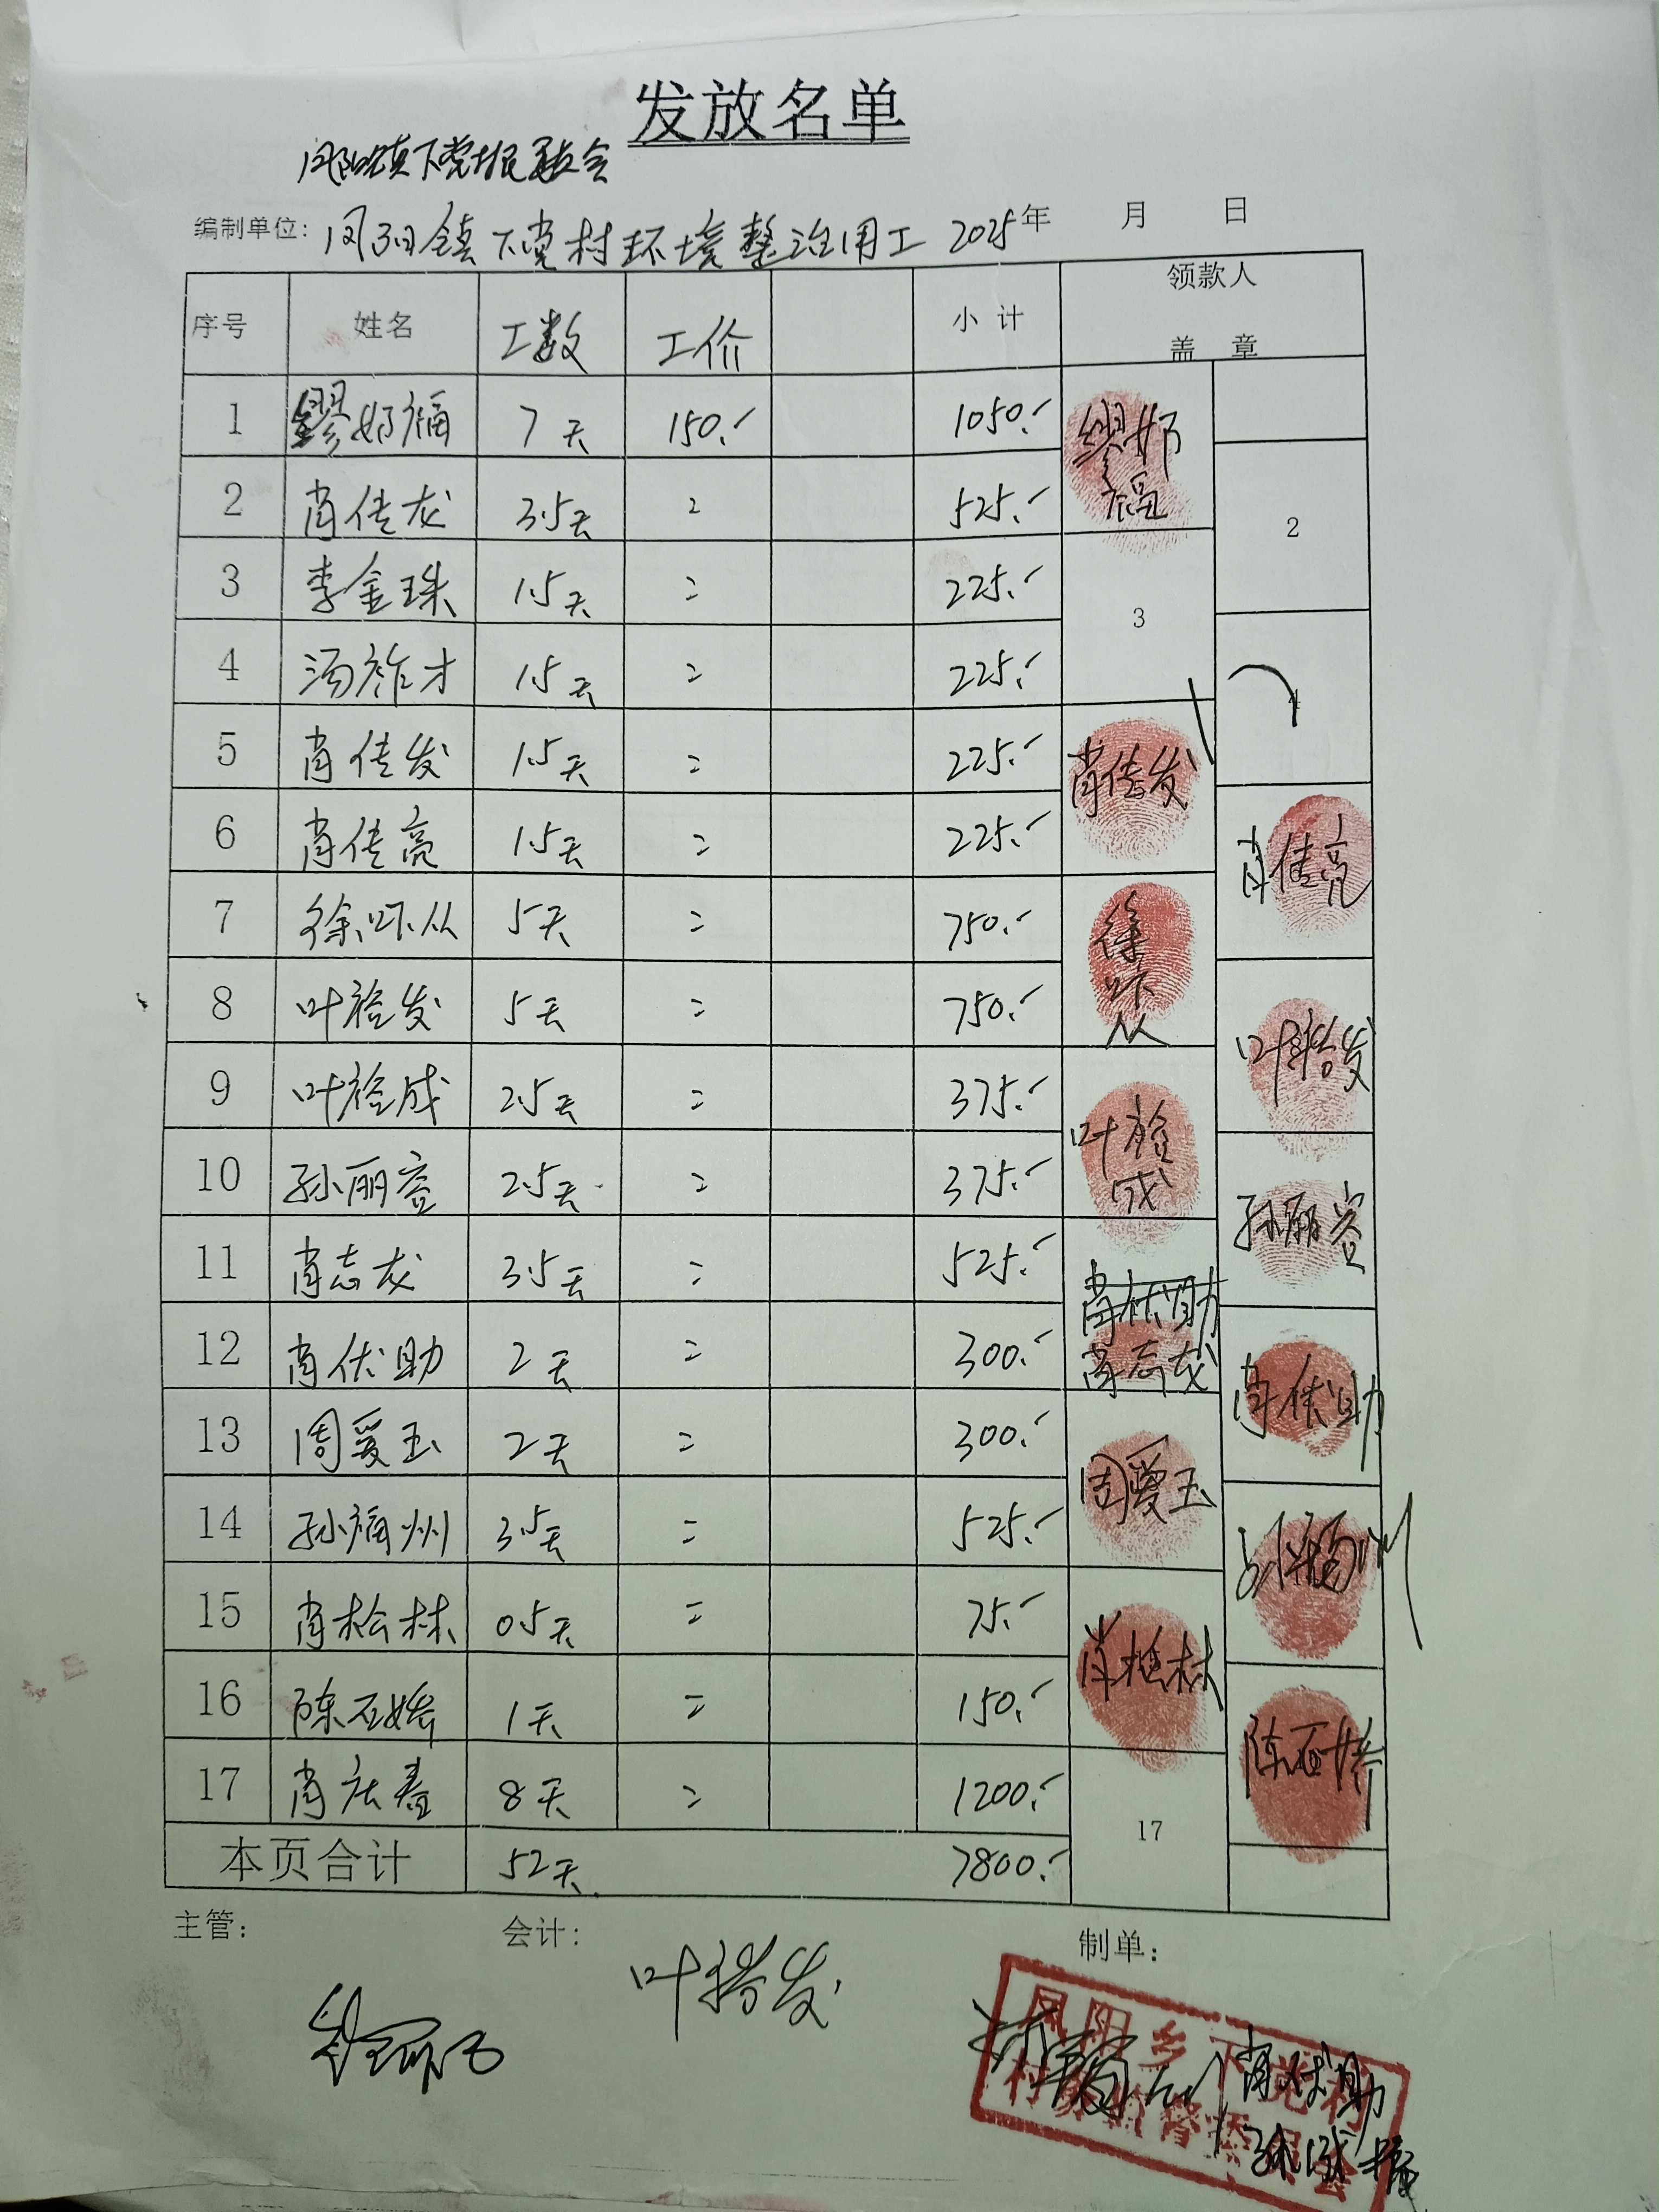 发放名单
凤阳镇下党村民委会
编制单位: 凤阳镇下党村环境整治用工 2025年 月 日
序号 姓名 工数 工价 小计 领款人
盖 章
1 缪奶福 7天 150.- 1050.- 缪奶福
2 肖传龙 3.5天 〃 525.- 2
3 李金珠 1.5天 〃 225.- 3
4 汤祚才 1.5天 〃 225.- 4
5 肖传发 1.5天 〃 225.- 肖传发
6 肖传亮 1.5天 〃 225.- 肖传亮
7 徐吓从 5天 〃 750.- 徐吓从
8 叶裕发 5天 〃 750.- 叶裕发
9 叶裕成 2.5天 〃 375.- 叶裕成
10 孙丽容 2.5天 〃 375.- 孙丽容
11 肖志龙 3.5天 〃 525.- 肖伏助 肖志龙
12 肖伏助 2天 〃 300.- 肖伏助
13 周爱玉 2天 〃 300.- 周爱玉
14 孙福州 3.5天 〃 525.- 孙福州
15 肖松林 0.5天 〃 75.- 肖松林
16 陈石娇 1天 〃 150.- 陈石娇
17 肖庆春 8天 〃 1200.- 17
本页合计 52天 7800.-
主管: 会计: 制单:
叶裕发
凤阳乡下党村
村务监督委员会
肖伏助